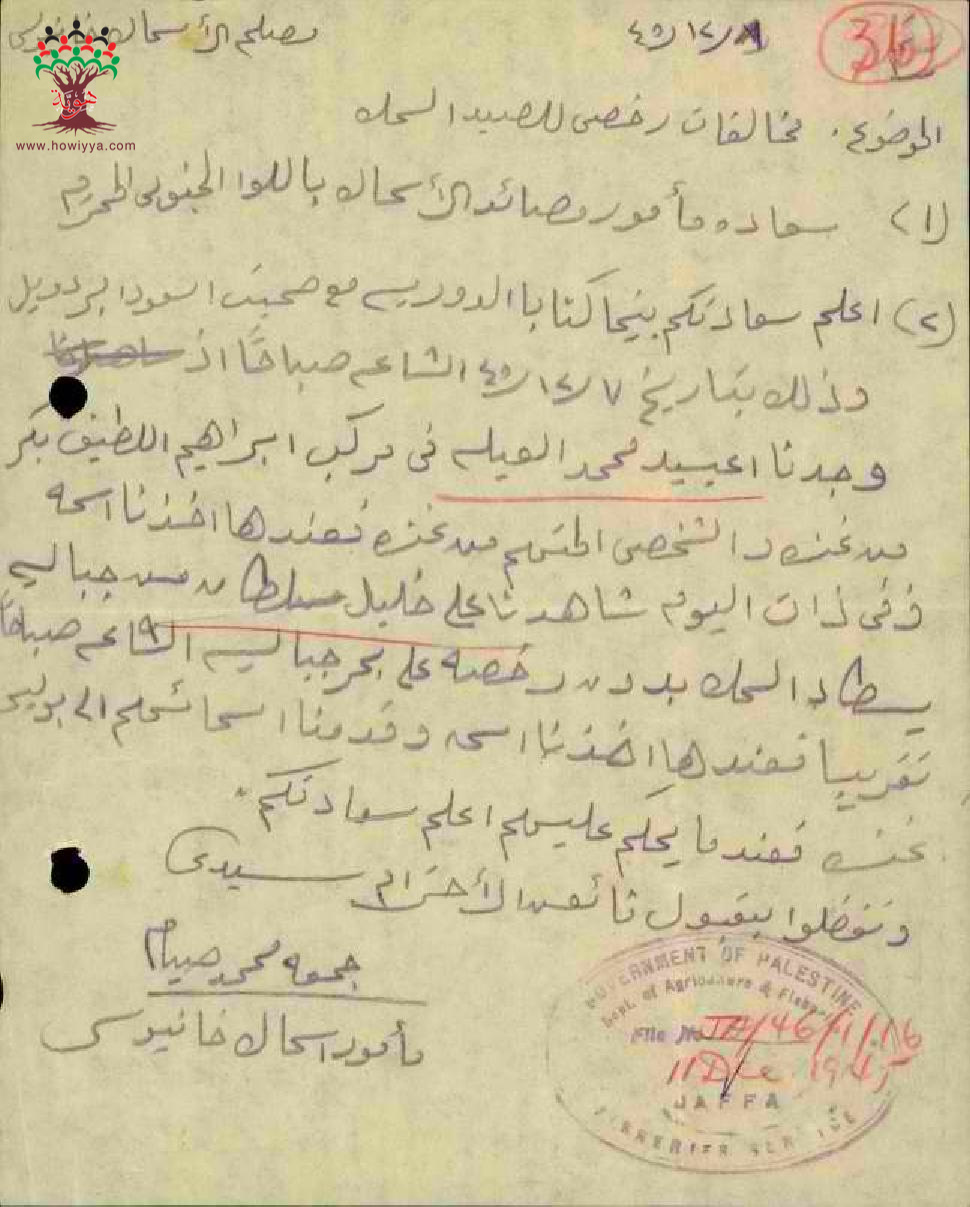 مصلحة الأسماك خانيونس
٨/١٢/٤٥
36
www.howiyya.com
الموضوع. مخالفات رخص للصيد السمك
(١) سعاده مأمور مصائد الأسماك باللوا الجنوبي المحترم
(٢) اعلم سعادتكم بينما كنا بالدوريه مع صحبت اسعود البردويل
وذلك بتاريخ ٧/١٢/٤٥ الساعه صباحاً اذ
وجدنا اعبيد محمد العيله في مركب ابراهيم اللطيف بكر
من غزه والشخص المتهم من غزه فعندها اخذنا اسمه
وفي ذات اليوم شاهدنا علي خليل سلطان من جباليه
يسطاد السمك بدون رخصه على بحر جباليه الساعه ٩ صباحاً
تقريبا فعندها اخذنا اسمه وقدمنا اسمائهم الى بوليس
غزه فعندما يحكم عليهم اعلم سعادتكم.
وتفضلوا بقبول فائق الأحترام سيدي
جمعه محمد صيام
مأمور اسماك خانيونس
GOVERNMENT OF PALESTINE
Dept. of Agriculture & Fisheries
File No JA/46/1/16
11 Dec 1945
JAFFA
FISHERIES SERVICE